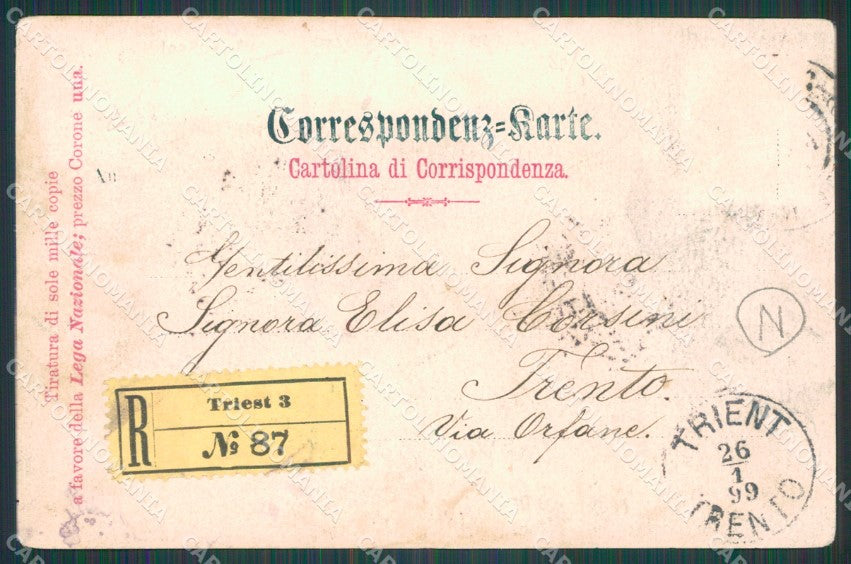 Tiratura di sole mille copie
a favore della Lega Nazionale; prezzo Corone una.
Correspondenz=Karte.
Cartolina di Corrispondenza.
Gentilissima Signora
Signora Elisa Corsini
Trento.
Via Orfane.
N
R
Triest 3
№ 87
TRIENT
26
1
99
TRENTO
CARTOLINOMANIA